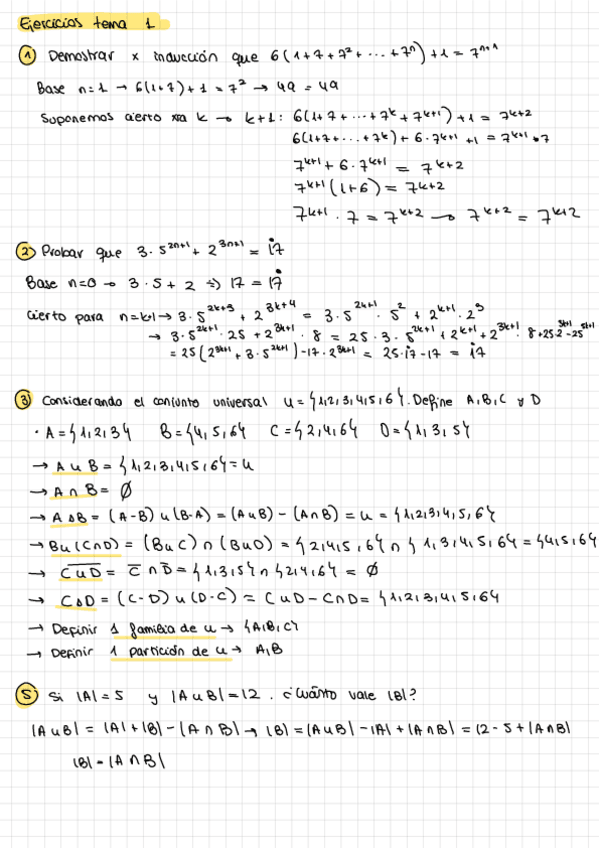 Ejercicios tema 1
① Demostrar x inducción que 6(1+7+7²+ ... +7ⁿ)+1 = 7ⁿ⁺¹
Base n=1 → 6(1+7)+1 = 7² → 49 = 49
Suponemos cierto xra k → k+1: 6(1+7+ ... +7ᵏ+7ᵏ⁺¹)+1 = 7ᵏ⁺²
6(1+7+...+7ᵏ)+6·7ᵏ⁺¹+1 = 7ᵏ⁺¹·7
7ᵏ⁺¹+6·7ᵏ⁺¹ = 7ᵏ⁺²
7ᵏ⁺¹(1+6) = 7ᵏ⁺²
7ᵏ⁺¹·7 = 7ᵏ⁺² → 7ᵏ⁺² = 7ᵏ⁺²
② Probar que 3·5²ⁿ⁺¹ + 2³ⁿ⁺¹ = i̇7
Base n=0 → 3·5+2 ⇒ 17 = i̇7
cierto para n=k+1 → 3·5²ᵏ⁺³ + 2³ᵏ⁺⁴ = 3·5²ᵏ⁺¹·5² + 2ᵏ⁺¹·2³
→ 3·5²ᵏ⁺¹·25 + 2³ᵏ⁺¹·8 = 25·3·5²ᵏ⁺¹ + 2ᵏ⁺¹ + 2³ᵏ⁺¹·8+25·2³ᵏ⁺¹-25³ᵏ⁺¹
= 25(2³ᵏ⁺¹ + 3·5²ᵏ⁺¹)-17·2³ᵏ⁺¹ = 25·i̇7-17 = i̇7
③ Considerando el conjunto universal U={1,2,3,4,5,6}. Define A,B,C y D
· A={1,2,3} B={4,5,6} C={2,4,6} D={1,3,5}
→ A∪B = {1,2,3,4,5,6} = U
→ A∩B = ∅
→ A△B = (A-B)∪(B-A) = (A∪B)-(A∩B) = U = {1,2,3,4,5,6}
→ B∪(C∩D) = (B∪C)∩(B∪D) = {2,4,5,6}∩{1,3,4,5,6} = {4,5,6}
→ C̅∪̅D̅ = C̅∩D̅ = {1,3,5}∩{2,4,6} = ∅
→ C△D = (C-D)∪(D-C) = C∪D-C∩D = {1,2,3,4,5,6}
→ Definir 1 familia de U → {A,B,C}
→ Definir 1 partición de U → A,B
⑤ Si |A|=5 y |A∪B|=12. ¿Cuánto vale |B|?
|A∪B| = |A|+|B|-|A∩B| → |B| = |A∪B|-|A|+|A∩B| = 12-5+|A∩B|
|B|-|A∩B|